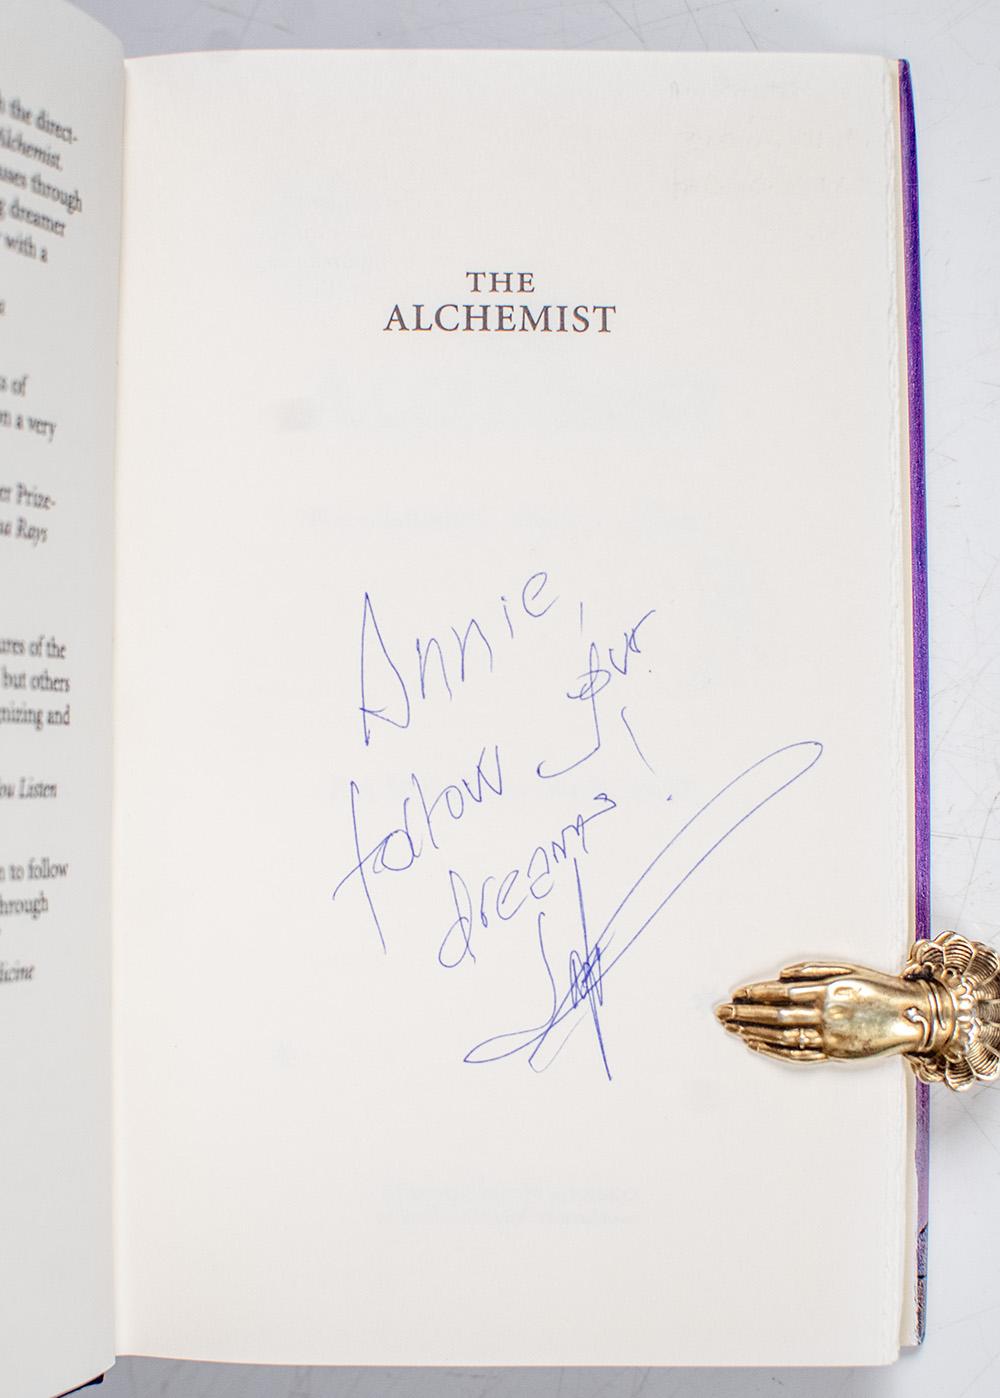 h the direct-
Alchemist,
uses through
g dreamer
with a
s of
on a very
er Prize-
ma Rays
ures of the
but others
gnizing and
You Listen
n to follow
hrough
dicine
THE
ALCHEMIST
Annie,
follow your
dreams!